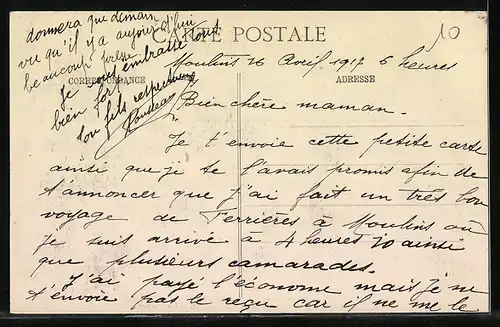 CARTE POSTALE
CORRESPONDANCE
ADRESSE
10
Moulins 26 Avril 1917 5 heures
Bien chère maman.
Je t'envoie cette petite carte
ainsi que je te l'avais promis afin de
t'annoncer que j'ai fait un très bon
voyage de Ferrières à Moulins où
je suis arrivé à 4 heures 20 ainsi
que plusieurs camarades.
J'ai payé l'économe mais je ne
t'envoie pas le reçu car il ne me le
donnera que demain
vu qu'il y a aujourd'hui
beaucoup presse.
Je vous embrasse tout
bien fort
ton fils respectueux